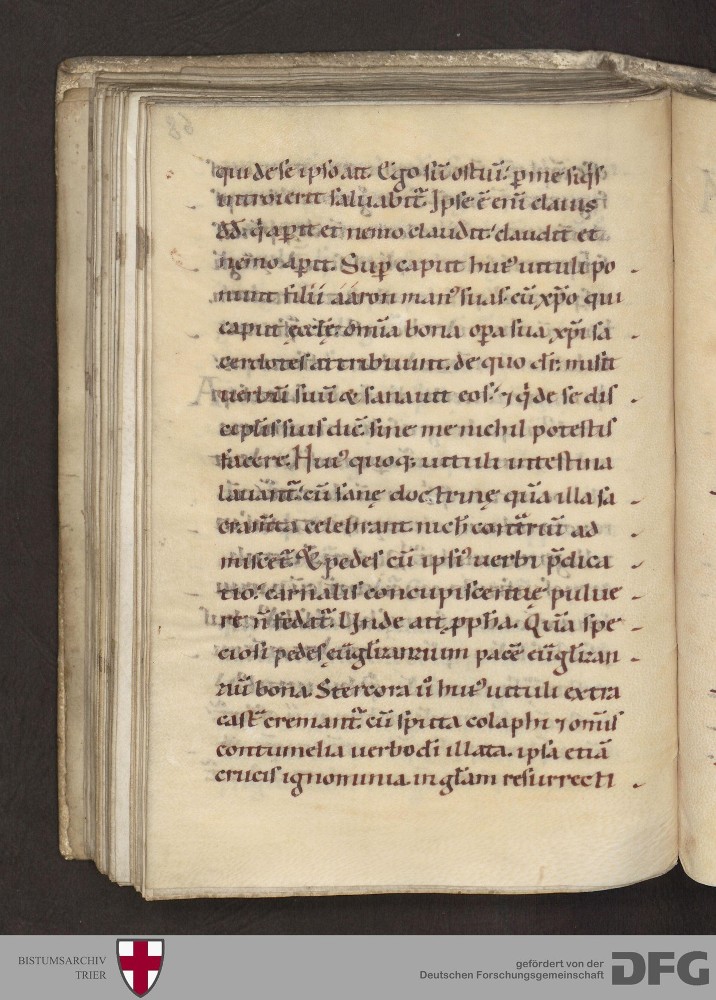 qui de se ipso ait. Ego sū ostiū. ꝑ me siq̇s
introierit saluabit᷑. Ipse ē eni᷑ clauis
dd̄. q̇ aꝑit et nemo claudit. claudit et
nemo aꝑit. Suꝑ caput huiꝰ uituli po
nunt filii aaron manꝰ suas. cū xp̄o qui
caput ęcclę̄. om̄ia bona oꝑa sua xp̄i sa
cerdotes attribuunt. de quo dr̄. misit
uerbū suū & sanauit eos. ⁊ q̇ de se dis
ciplis suis dic̄. sine me nichil potestis
facere. Huiꝰ quoq; uituli intestina
lauant᷑. cū sanę doctrinę q̄ua illa sa
cram̄ta celebrant nich̄ cont̄riū ad
miscet᷑. & pedes cū ipsiꝰ uerbi p̄dica
tio. carnalis concupiscentię puluе
re n̄ fedat᷑. Unde ait ꝓpha. Quā spe
ciosi pedes eūglizantium pacē eūglizan
tiū bona. Stercora ū huiꝰ uituli extra
cast̄ cremant᷑. cū sputa colaphi ⁊ om̄is
contumelia uerbo dī illata. ipsa etiā
crucis ignominia. in gl̄am resurrecti
BISTUMSARCHIV
TRIER
gefördert von der
Deutschen Forschungsgemeinschaft
DFG